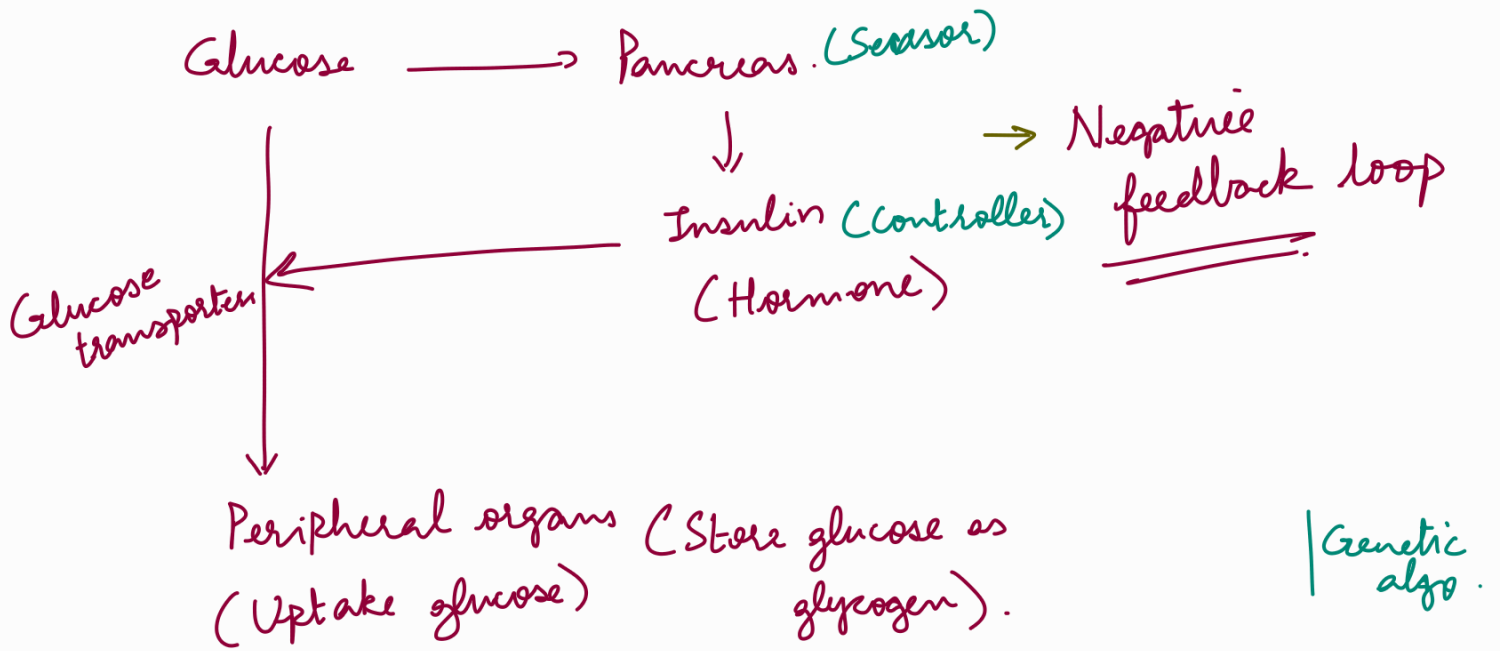 Glucose → Pancreas. (Sensor)
→ Negative
feedback loop
Insulin (Controller)
(Hormone)
Glucose
transporter
Peripheral organs (Store glucose as
(Uptake glucose) glycogen).
Genetic
algo.